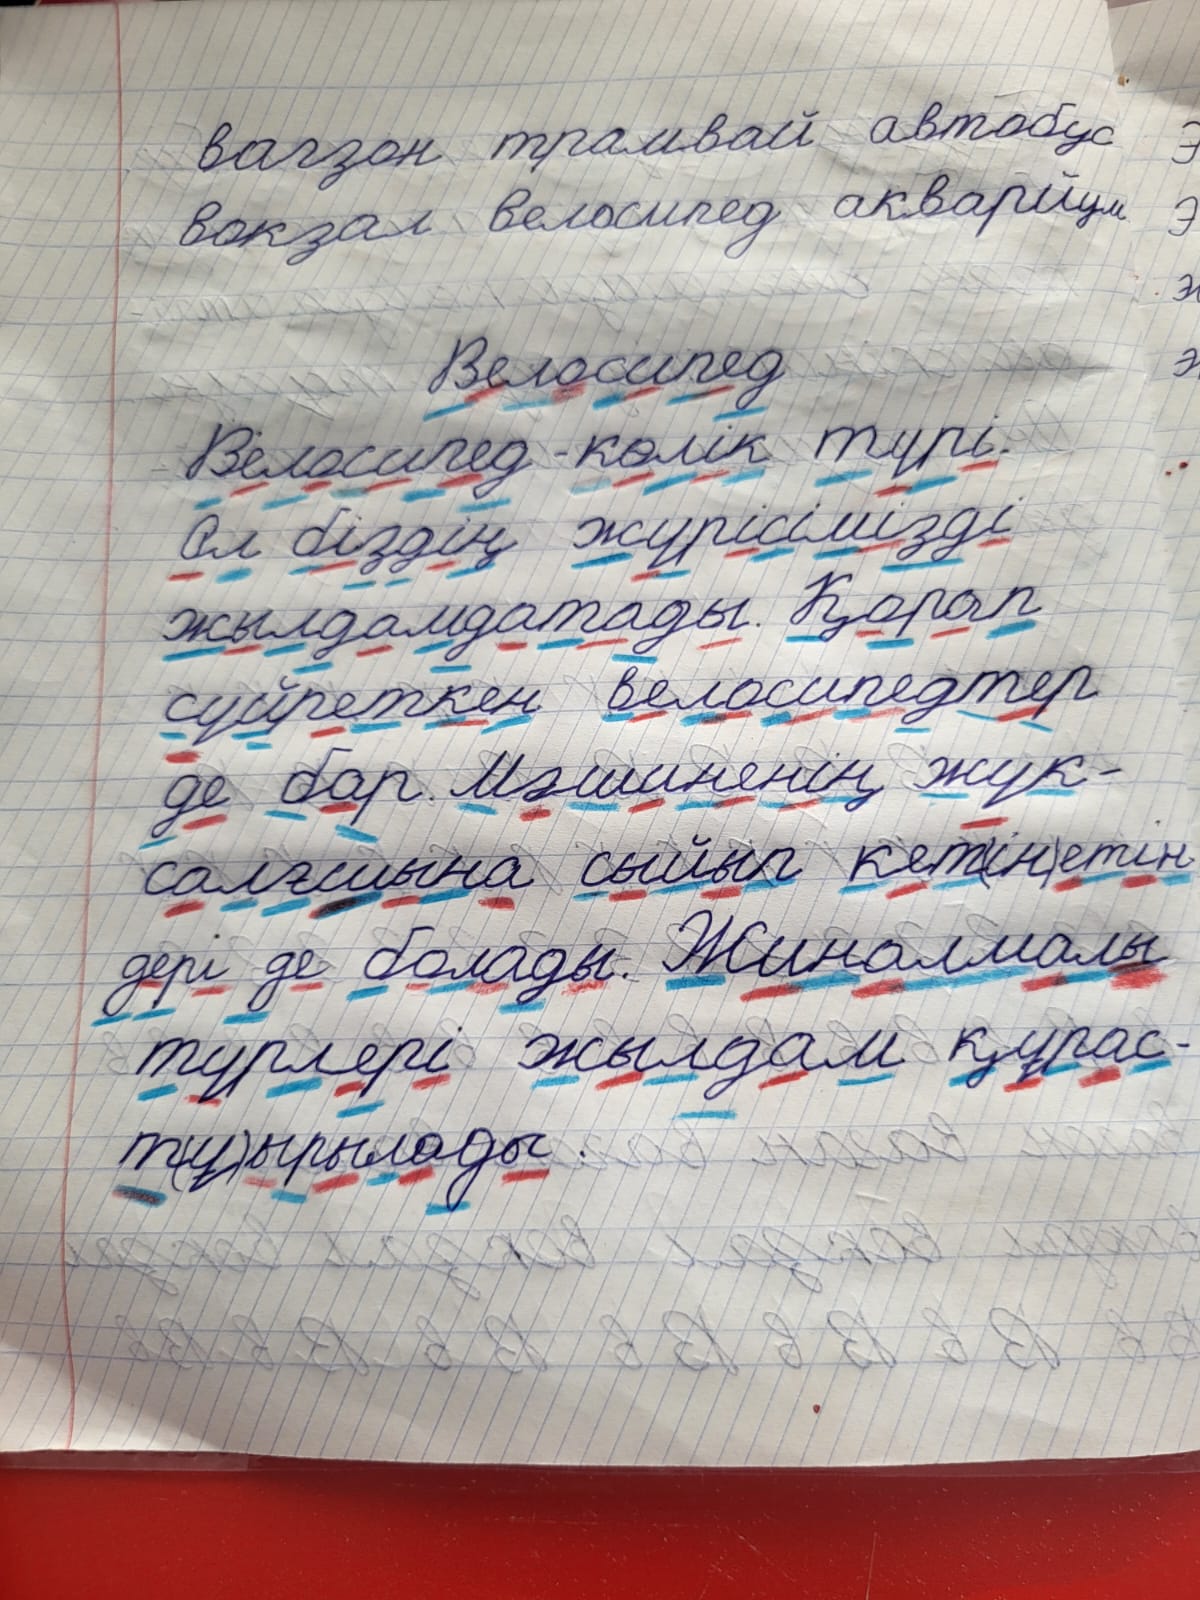 вагзон трамвай автобус
вокзал велосипед акварійум
Велосипед
Велосипед - көлік түрі.
Ол біздің жүрісімізді
жылдамдатады. Қорап
сүйреткен велосипедтер
де бар. Мәшиненің жүк-
салғышына сыйып кет(ін)етін
дері де болады. Жиналмалы
түрлері жылдам құрас-
т(у)ырылады.